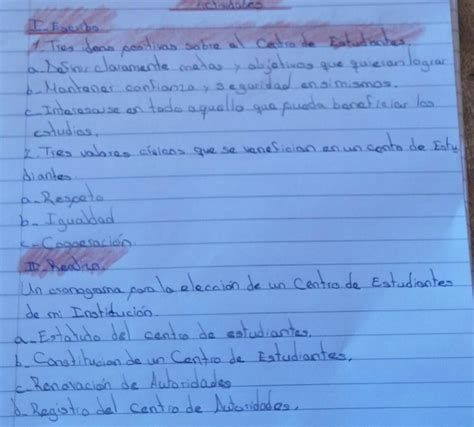 Actividades
I. Escribo
1. Tres ideas positivas sobre el Centro de Estudiantes.
a. Definir claramente metas y objetivos que quieran lograr
b. Mantener confianza y seguridad en si mismos.
c. Interesarse en todo aquello que pueda beneficiar los
estudios.
2. Tres valores civicos que se venefician en un cento de Estu
diantes.
a- Respeto
b- Igualdad
c- Cooperación
II. Realizo.
Un cronograma para la eleccion de un Centro de Estudiantes
de mi Institución.
a- Estatuto del centro de estudiantes.
b. Constitucion de un Centro de Estudiantes.
c. Renovación de Autoridades
d- Registro del Centro de Autoridades.